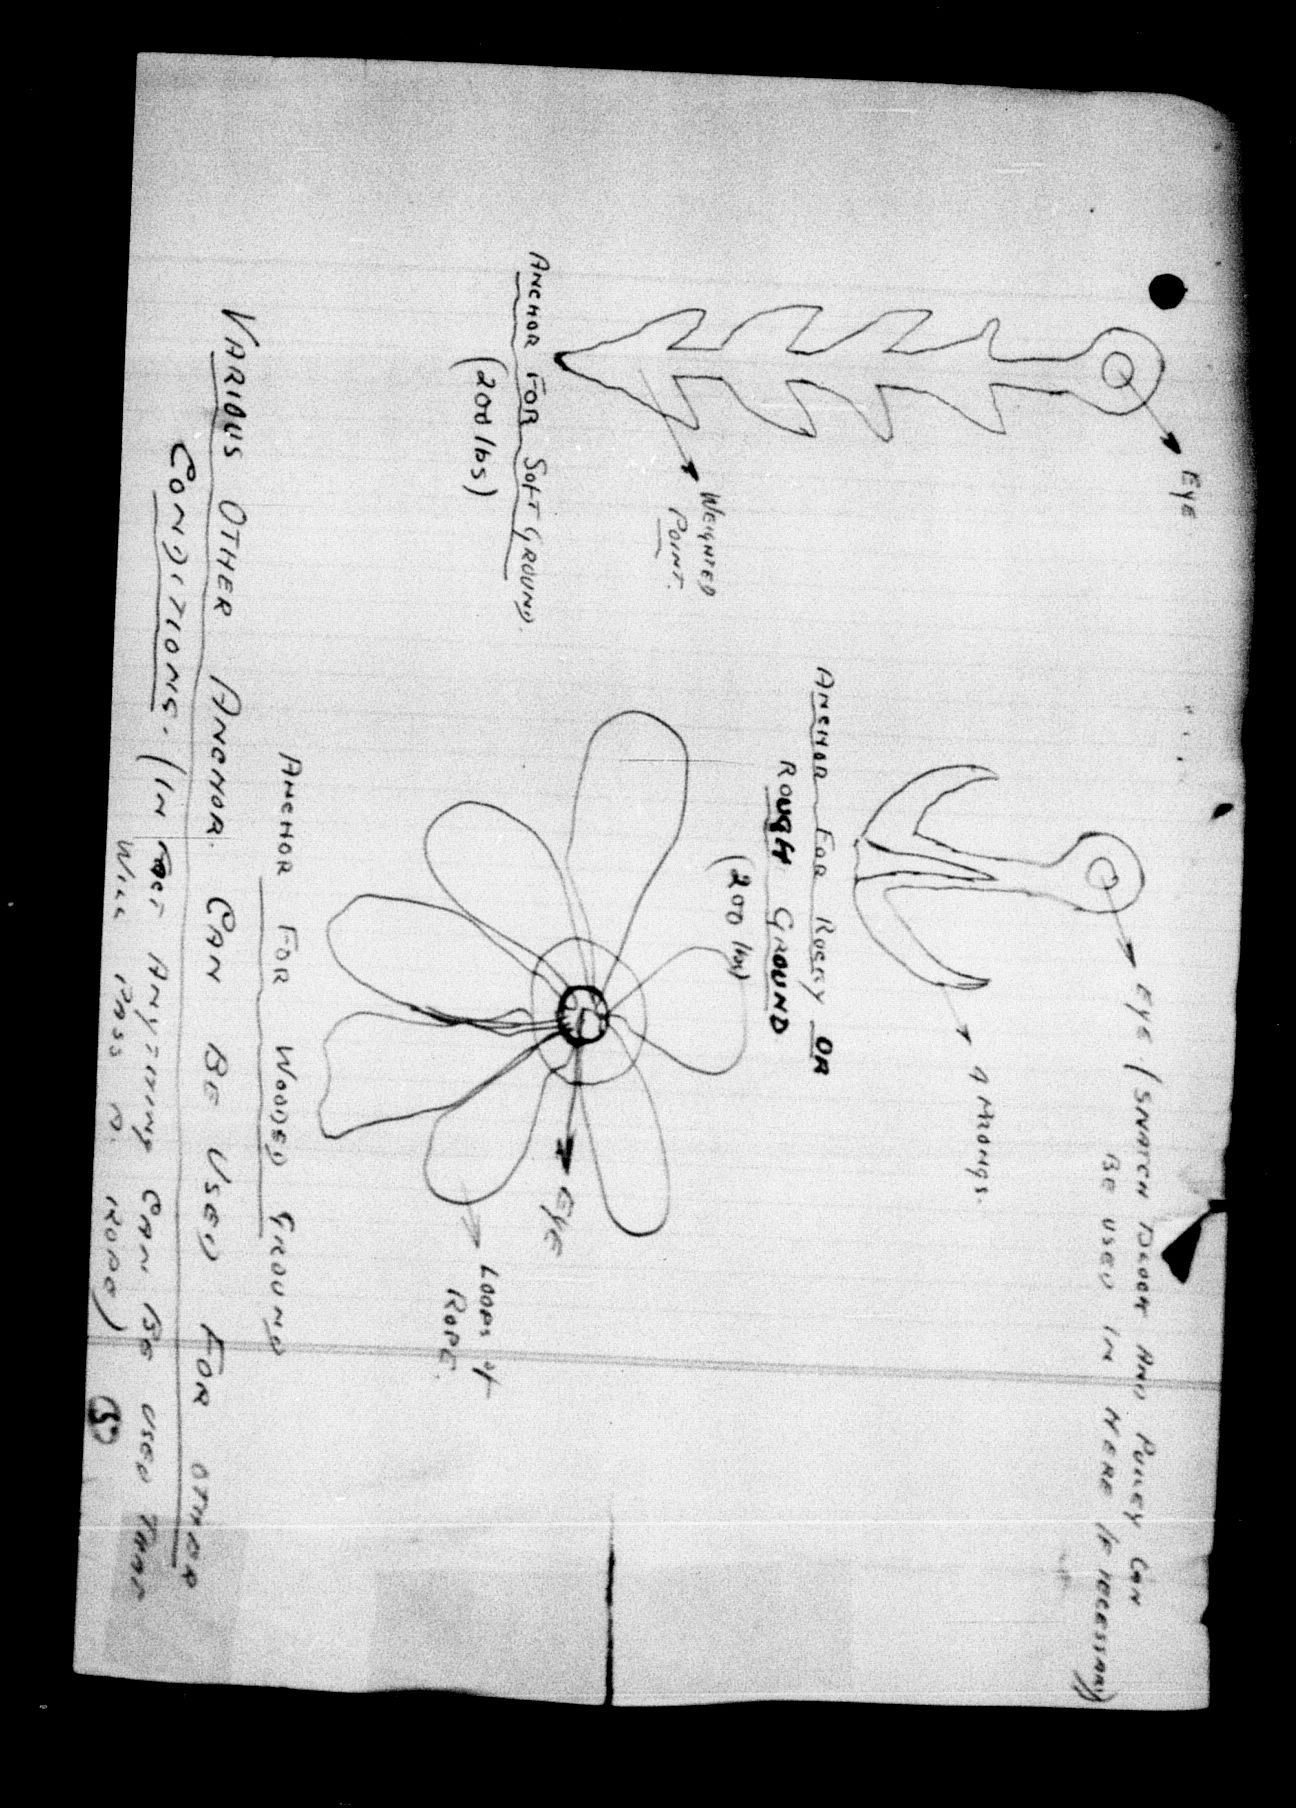 EYE
WEIGHTED
POINT.
ANCHOR FOR SOFT GROUND.
(200 lbs)
EYE. (SNATCH BLOCK AND PULLEY CAN
BE USED IN HERE IF NECESSARY)
4 PRONGS.
ANCHOR FOR ROCKY OR
ROUGH GROUND
(200 lbs)
EYE
LOOPS of
ROPE.
ANCHOR FOR WOODED GROUND
VARIOUS OTHER ANCHOR. CAN BE USED FOR OTHER
CONDITIONS. (IN FACT ANYTHING CAN BE USED THAT
WILL PASS A. ROPE)